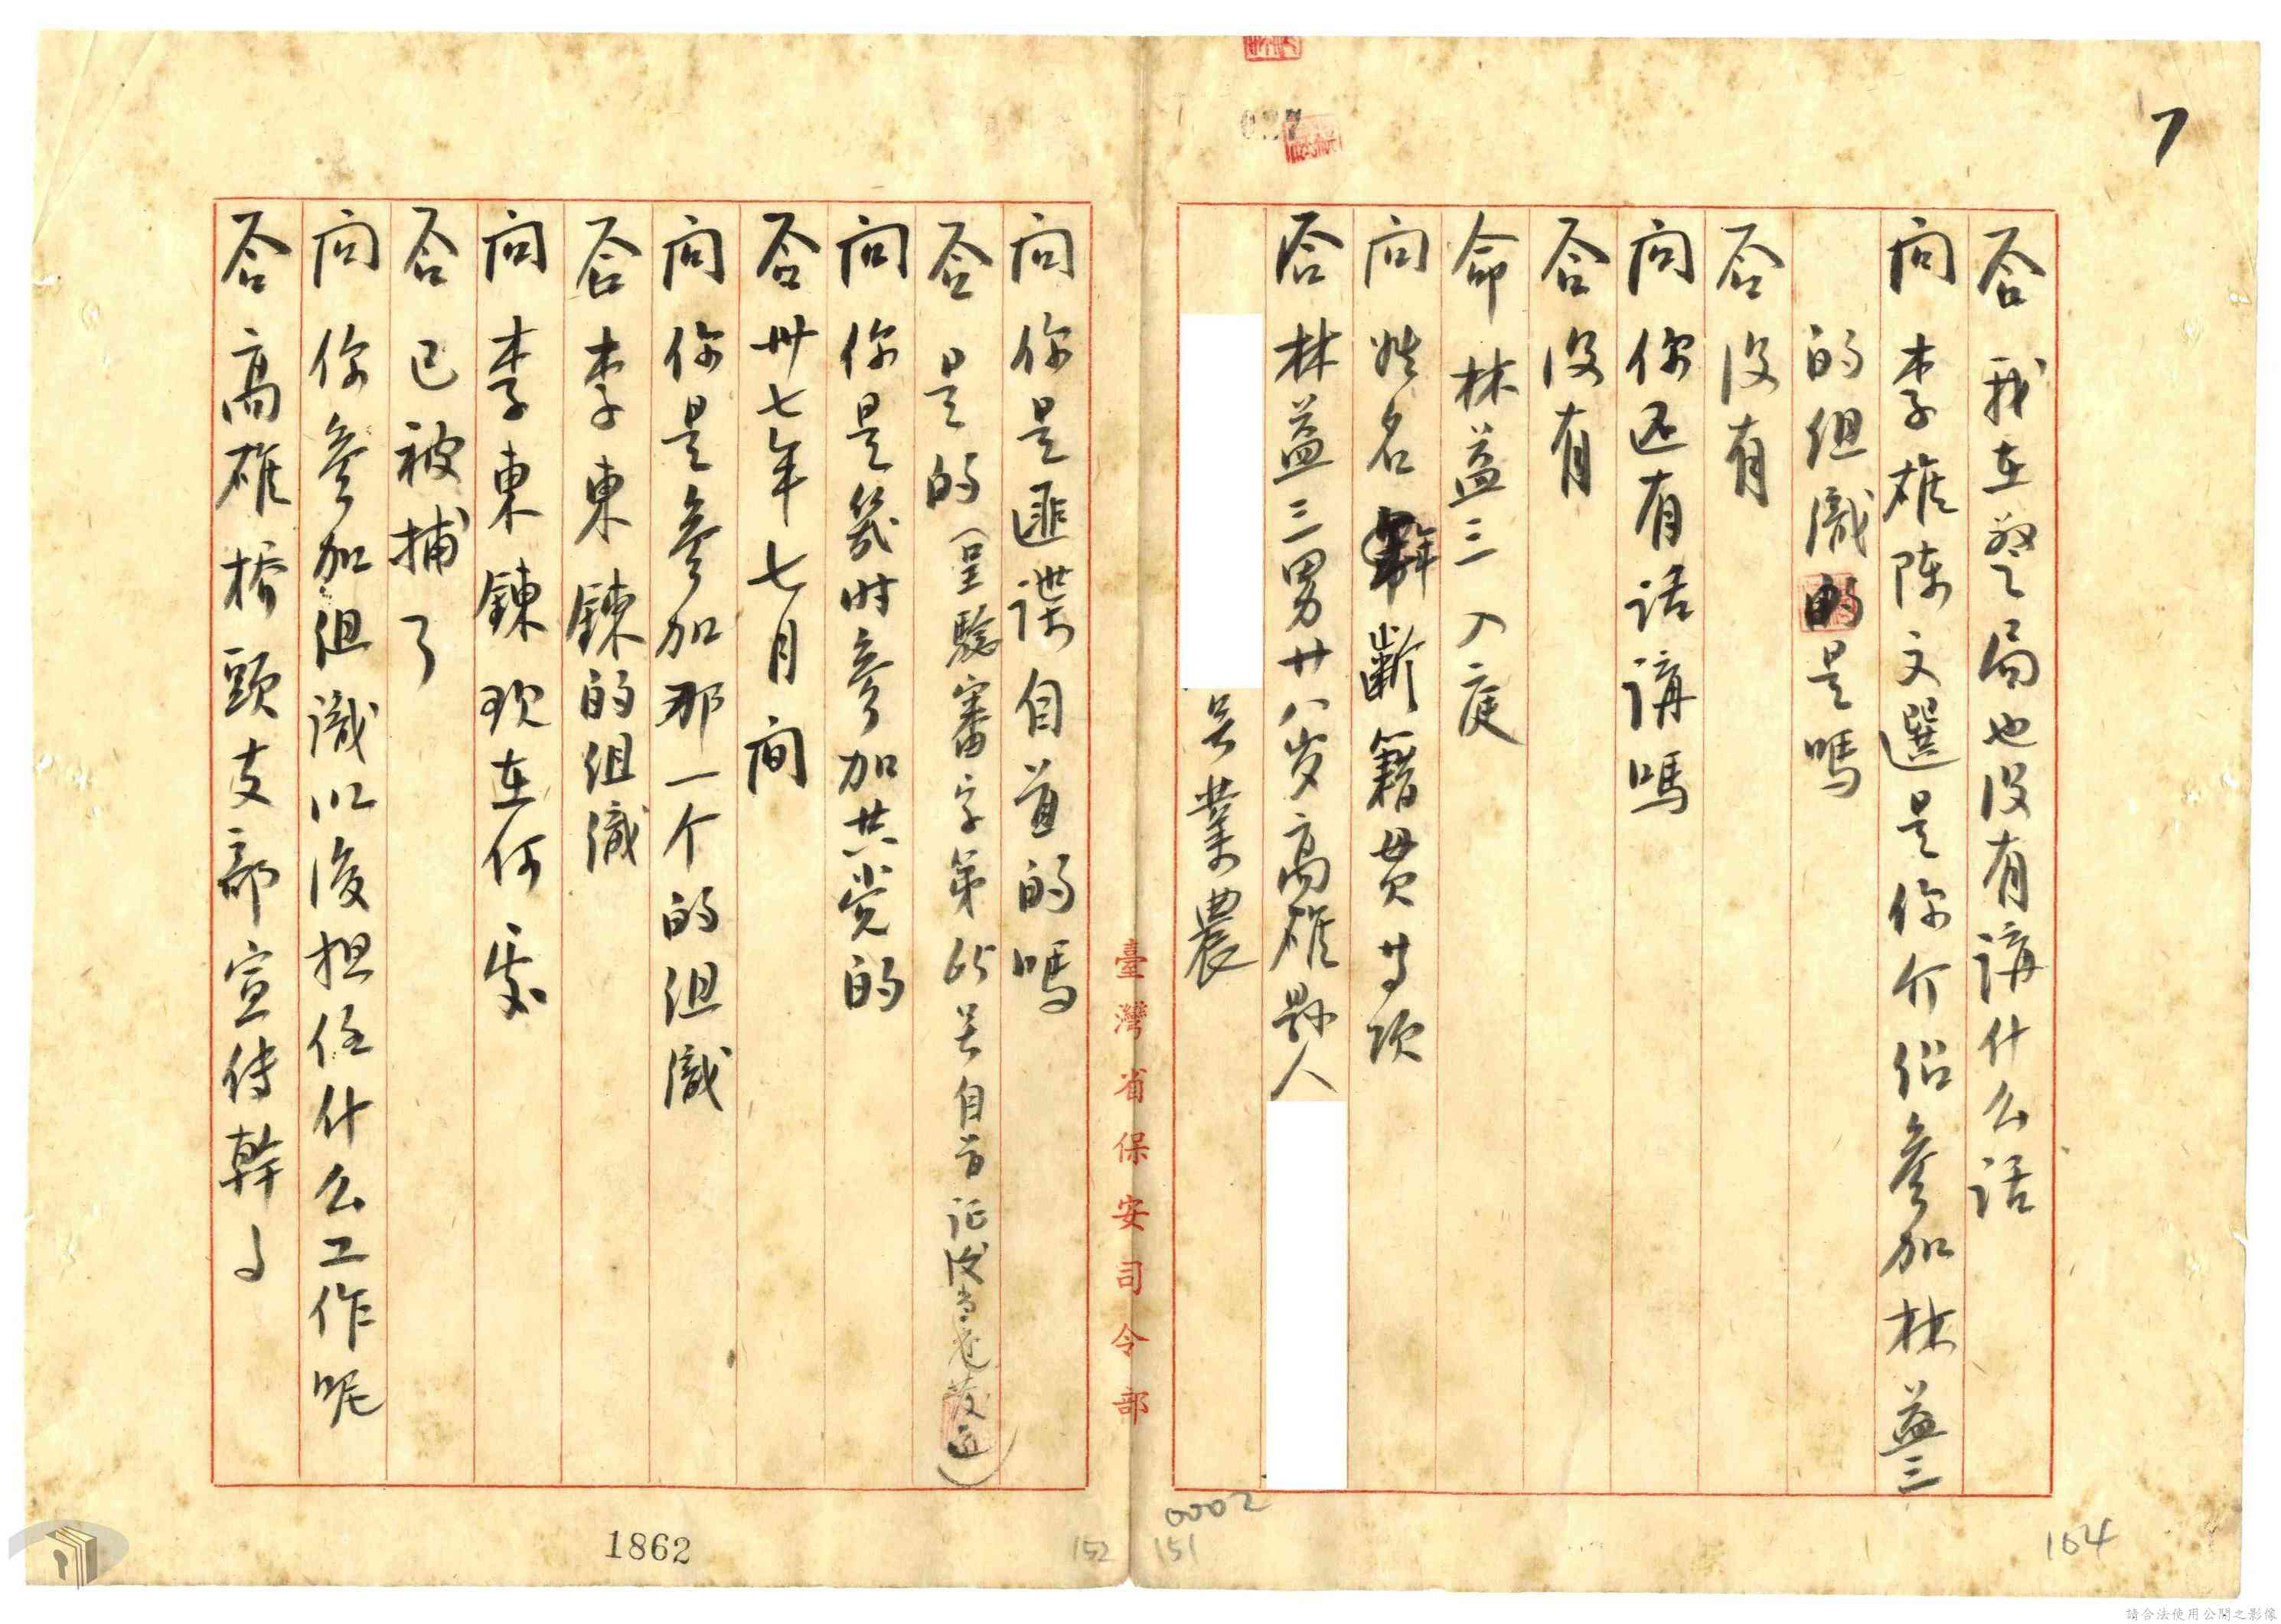 7
答 我在警局也没有講什么話
问 李雄陈文選是你介绍參加林益三
的组織的是嗎
答 没有
问 你还有话講嗎
答 没有
命 林益三入庭
问 姓名年齡籍貫等项
答 林益三男廿八岁高雄县人
業農
臺灣省保安司令部
问 你是匪諜自首的嗎
答 是的(呈驗審字第 自首证後当庭發還)
问 你是幾时參加共党的
答 卅七年七月间
问 你是參加那一个的组織
答 李東鍊的组織
问 李東鍊现在何處
答 已被捕了
问 你參加组識以後担任什么工作呢
答 高雄橋頭支部宣传幹
0002
104
151
152
1862
請合法使用公開之影像